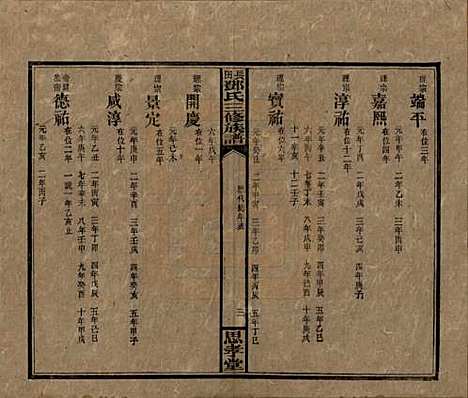 理宗
端平
在位三年
元年甲午 二年乙未 三年丙申
理宗
嘉熙
在位四年
元年丁酉 二年戊戌 三年己亥 四年庚子
理宗
淳祐
在位十二年
元年辛丑 二年壬寅 三年癸卯 四年甲辰 五年乙巳
六年丙午 七年丁未 八年戊申 九年己酉 十年庚戌
十一年辛亥 十二年壬子
理宗
寶祐
在位六年
元年癸丑 二年甲寅 三年乙卯 四年丙辰 五年丁巳
六年戊午
長田
鄧氏三修族譜
歷代紀年表
三
思孝堂
理宗
開慶
元年己未
理宗
景定
在位五年
元年庚申 二年辛酉 三年壬戌 四年癸亥 五年甲子
度宗
咸淳
在位十年
元年乙丑 二年丙寅 三年丁卯 四年戊辰 五年己巳
六年庚午 七年辛未 八年壬申 九年癸酉 十年甲戌
恭宗
德祐
在位二年
元年乙亥 二年丙子